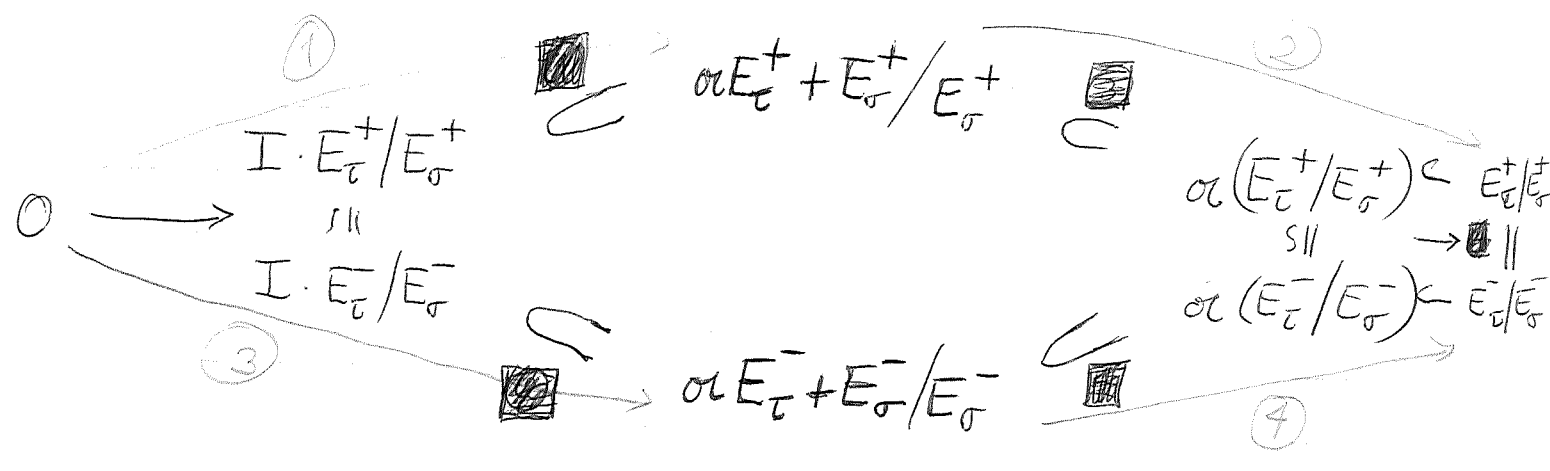 ①
②
𝔞E_τ^+ + E_σ^+/E_σ^+
I · E_τ^+/E_σ^+
𝔞(E_τ^+/E_σ^+) ↩ E_τ^+/E_σ^+
0 → S|| S|| → ||
I · E_τ^-/E_σ^-
𝔞(E_τ^-/E_σ^-) ↩ E_τ^-/E_σ^-
③
𝔞E_τ^- + E_σ^-/E_σ^-
④